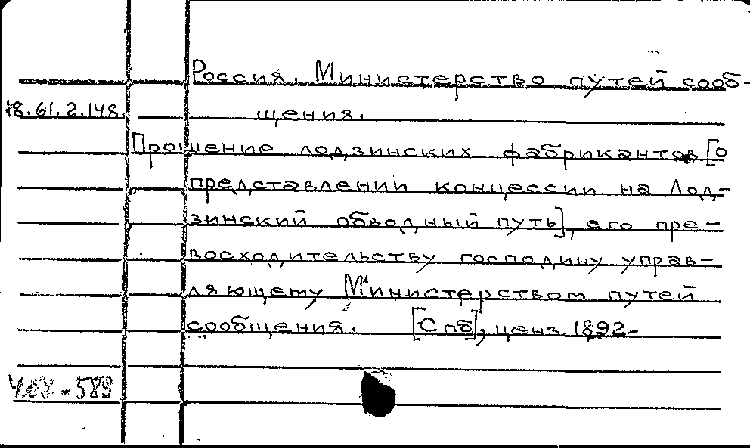 Россия. Министерство путей сооб-
18.61.2.148. щения.
Прошение лодзинских фабрикантов [о
представлении концессии на Лод-
зинский обводный путь], его пре-
восходительству господину управ-
ляющему Министерством путей
сообщения. [Спб], ценз. 1892-